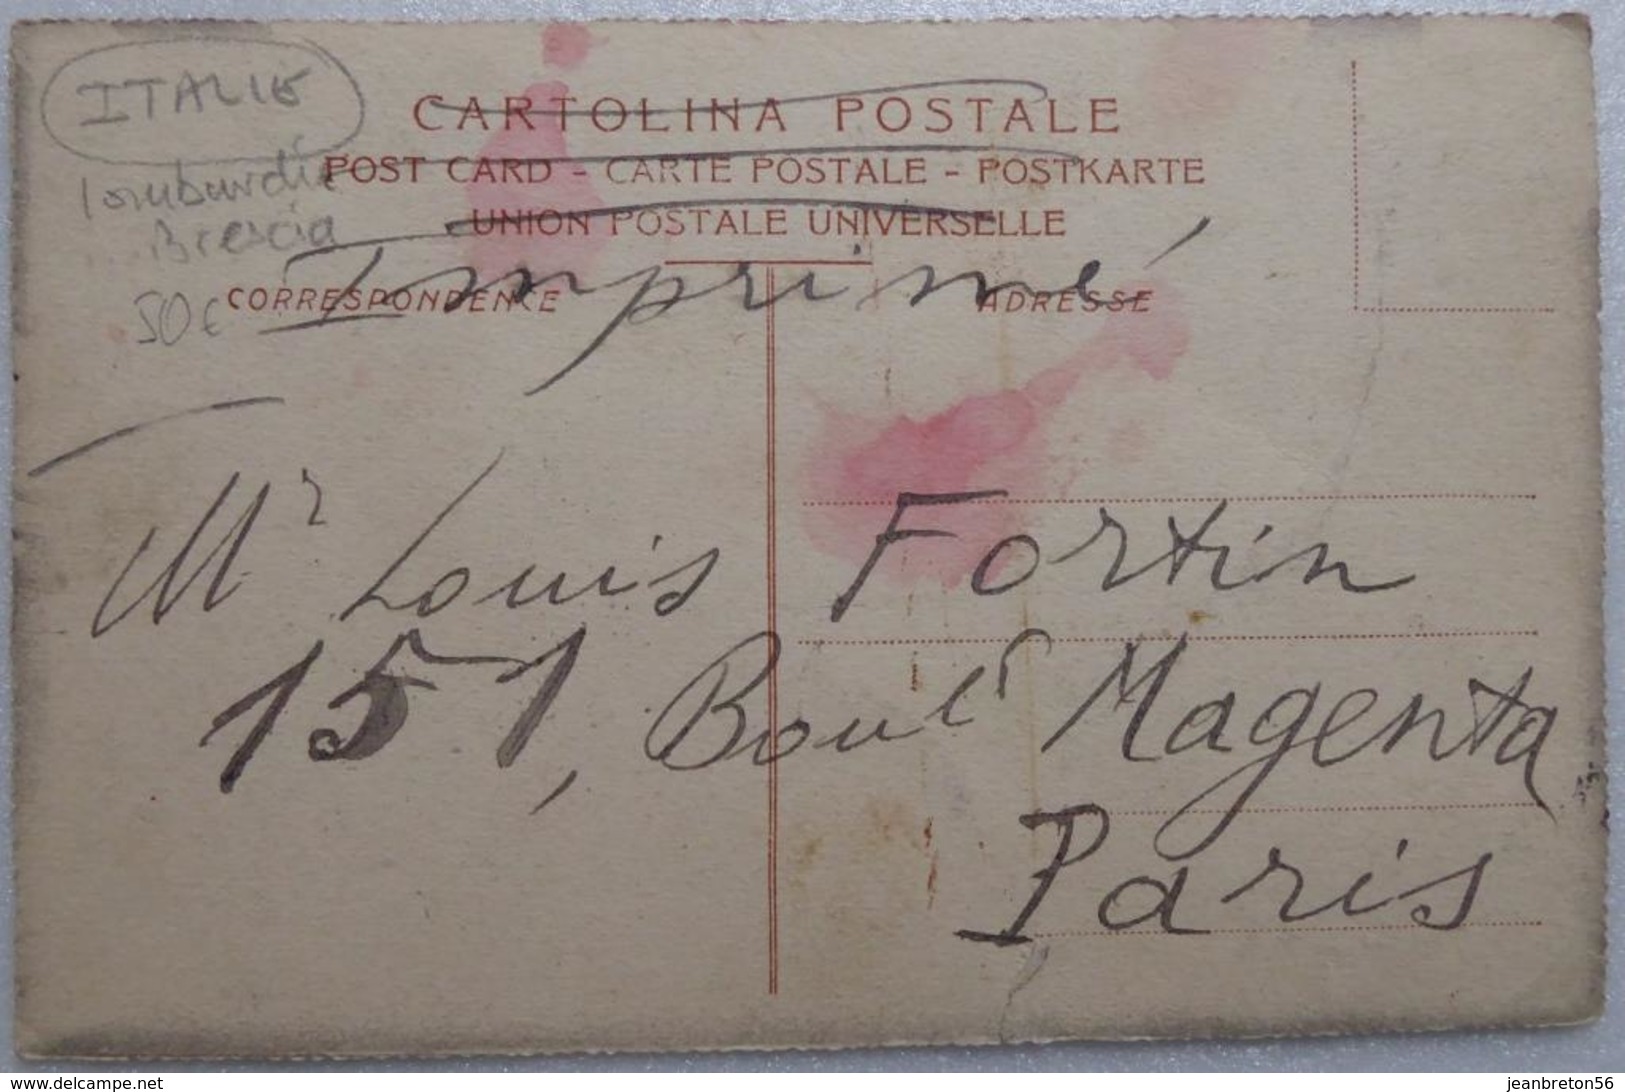 ITALIE
CARTOLINA POSTALE
POST CARD - CARTE POSTALE - POSTKARTE
Lombardie
UNION POSTALE UNIVERSELLE
... Brescia
Imprimé
CORRESPONDENCE
ADRESSE
50€
Mr Louis Fortin
151, Boulᵈ Magenta
Paris
www.delcampe.net
jeanbreton56